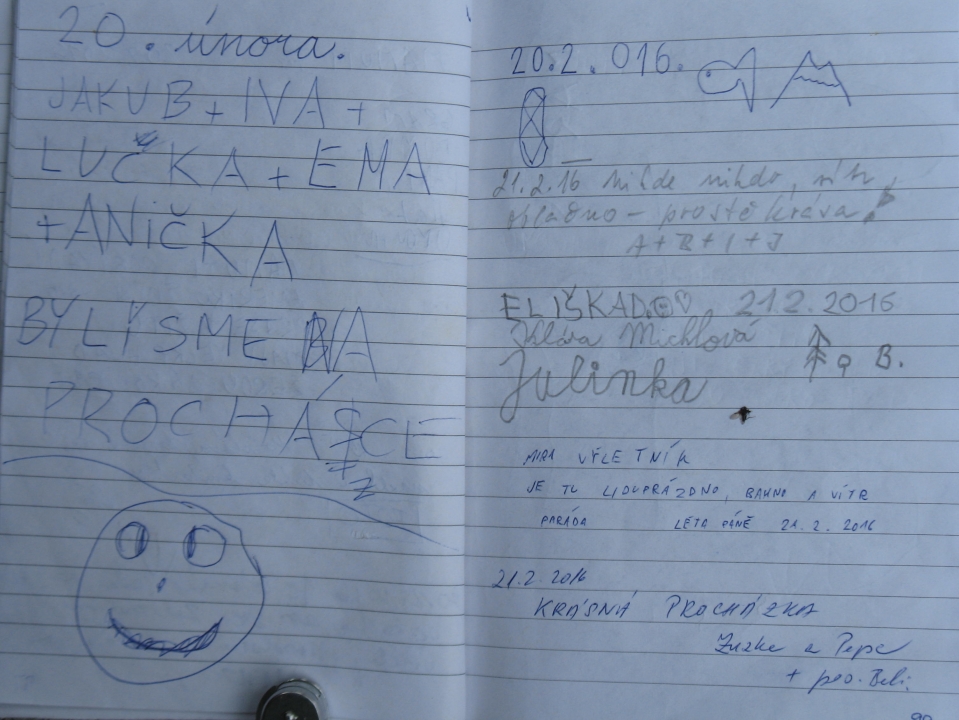 20. února.
JAKUB + IVA +
LUČKA + EMA
+ ANiČKA
BYLI JSME NA
PROCHÁSCE
Z
20.2.016.
21.2.16 nikde nikdo, vítr,
chladno - prostě kráva!
A + R + I + J
ELIŠKA D. 21.2.2016
Klára Michlová
B.
Julinka
MIRA VÝLETNÍK
JE TU LIDUPRÁZDNO, BAHNO A VÍTR
PARÁDA LÉTA PÁNĚ 21. 2. 2016
21.2.2016
KRÁSNÁ PROCHÁZKA
Zuzka a Pepe
+ pes